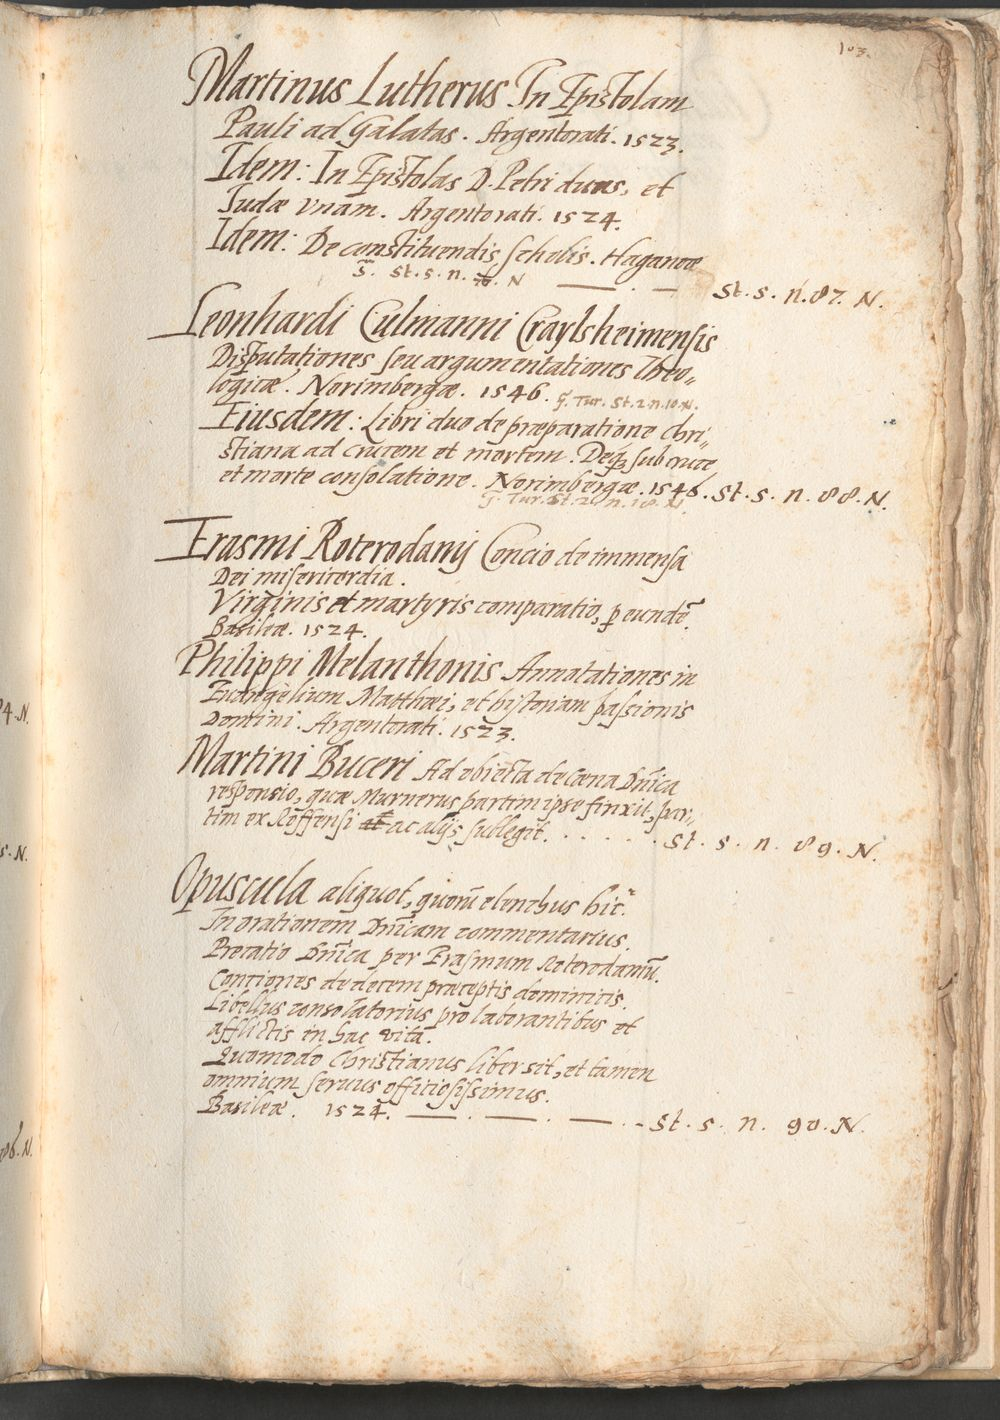 103.
Martinus Lutherus In Epistolam
Pauli ad Galatas. Argentorati. 1523.
Idem: In Epistolas D. Petri duas, et
Judæ vnam. Argentorati. 1524.
Idem: De constituendis Scholis. Haganoæ
St. s. n. N
St. s. n. 87. N.
Leonhardi Culmanni Craylsheimensis
Disputationes seu argumentationes Theo„
logicæ. Norimbergæ. 1546. Tur. St. 2. n. 10. N.
Eiusdem: Libri duo de præparatione Chri„
stiana ad crucem et mortem. Deq́ʒ sub cruce
et morte consolatione. Norimbergæ. 1546. St. s. n. 88. N.
Tur. St. 2. n. 10. N.
Erasmi Roterodamij Concio de immensa
Dei misericordia.
Virginis et martyris comparatio, ꝑ eundē.
Basileæ. 1524.
Philippi Melanthonis Annotationes in
Euangelium Matthæi, et historiam passionis
Domini. Argentorati. 1523.
Martini Buceri Ad obiecta de Cœna Dn̄ica
responsio, quæ Murnerus partim ipse finxit, par„
tim ex Roffensi ac alijs sublegit. . . . . . St. s. n. 89. N.
4. N.
s. N.
Opuscula aliquot, quorū elenchus hic.
In orationem Dn̄icam commentarius.
Precatio Dn̄ica per Erasmum Roterodamū.
Conciones de decem præceptis dominicis.
Libellus consolatorius pro laborantibus et
afflictis in hac vita.
Quomodo Christianus liber sit, et tamen
omnium seruus officiosissimus.
Basileæ. 1524. — . — . — . - St. s. n. 90. N.
86. N.